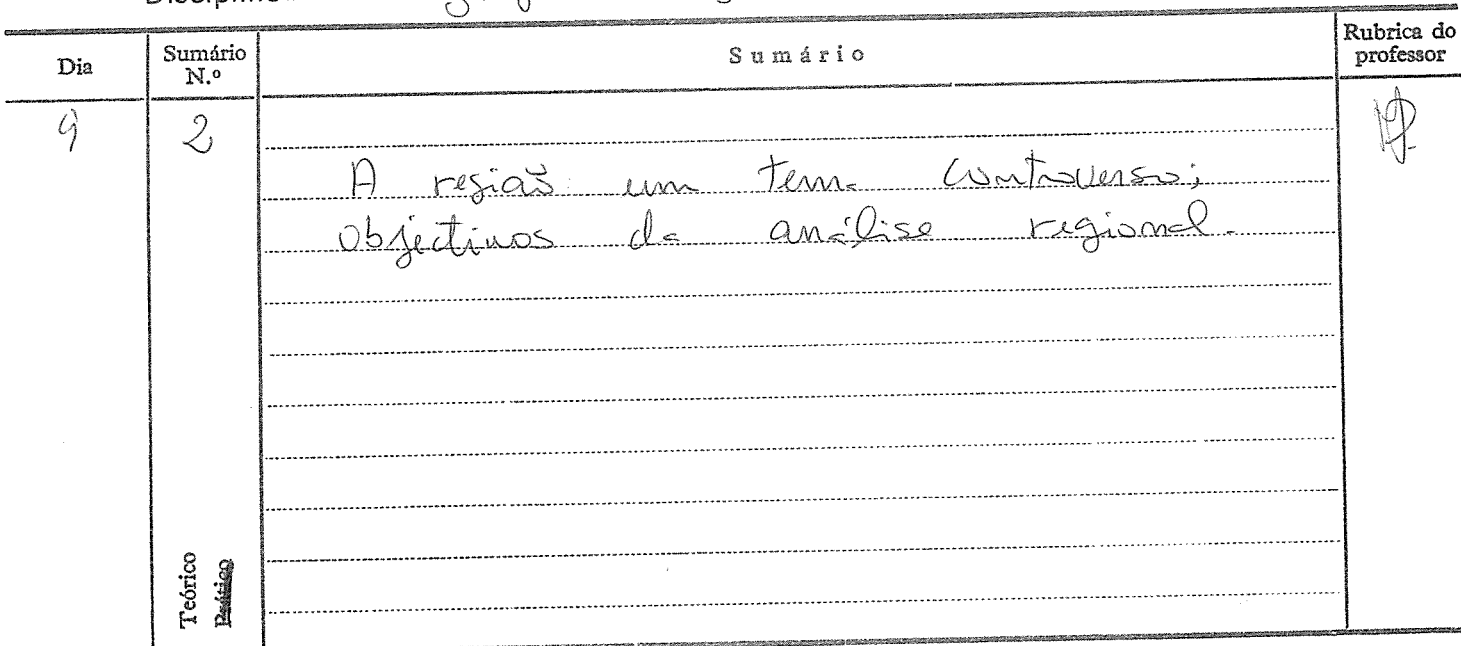 Dia
Sumário N.º
Sumário
Rubrica do professor
9
2
A região: um tema controverso;
objectivos da análise regional.
Teórico
Prático